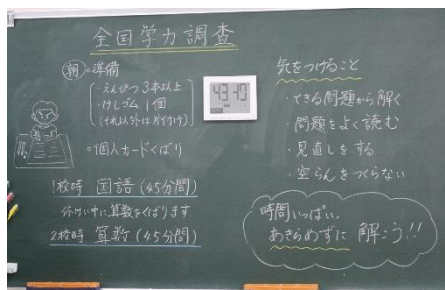 全国学力調査
朝 準備
・えんぴつ 3本以上
・けしゴム 1個
(それ以外は片付け)
個人カードくばり
1校時 国語 (45分間)
2校時 算数 (45分間)
43
気をつけること
・できる問題から解く
・問題をよく読む
・見直しをする
・空らんをつくらない
時間いっぱい、
あきらめずに 解こう!!